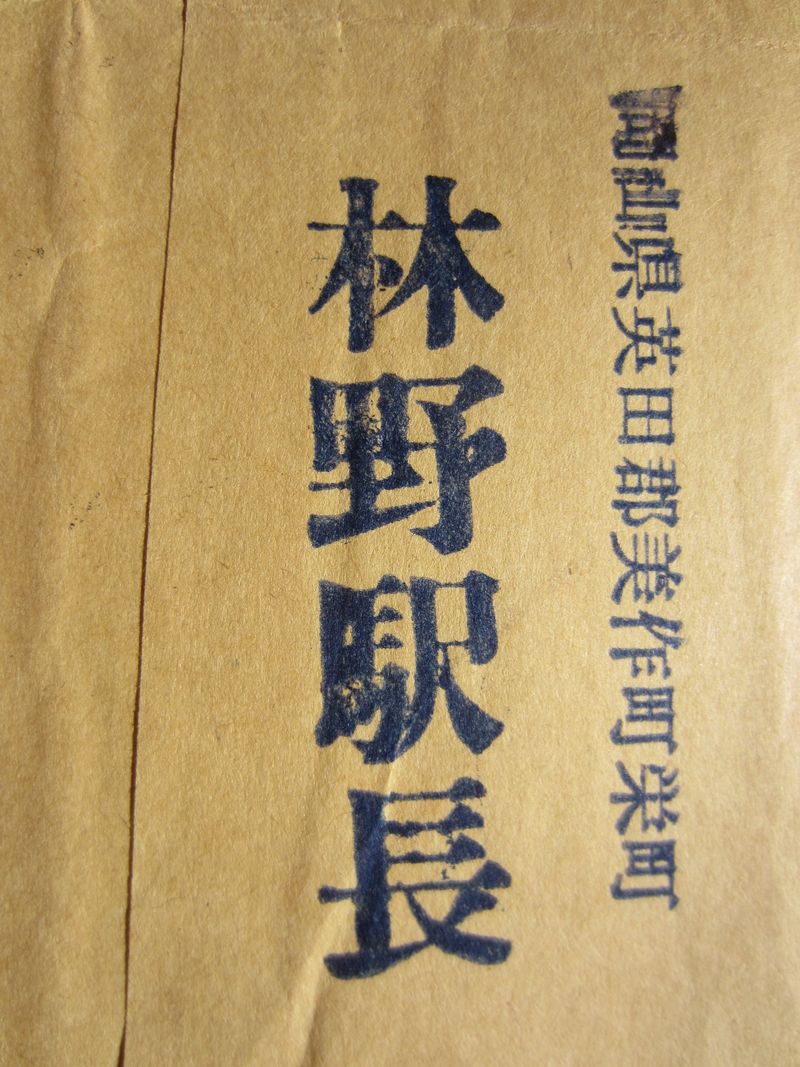 岡山県英田郡美作町栄町
林野駅長